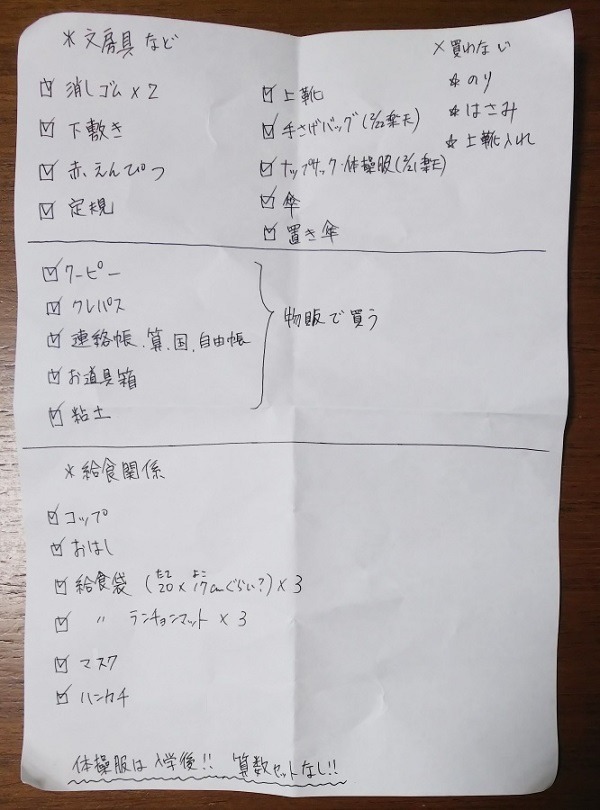 * 文房具など
☑ 消しゴム×2
☑ 下敷き
☑ 赤えんぴつ
☑ 定規
☑ 上靴
☑ 手さげバッグ(2/22楽天)
☑ ナップサック・体操服(2/21楽天)
☑ 傘
☑ 置き傘
×買わない
* のり
* はさみ
* 上靴入れ
☑ クーピー
☑ クレパス
☑ 連絡帳、算、国、自由帳
☑ お道具箱
☑ 粘土
物販で買う
* 給食関係
☑ コップ
☑ おはし
たて よこ
☑ 給食袋 (20×17cmぐらい?)×3
☑ 〃 ランチョンマット×3
☑ マスク
☑ ハンカチ
体操服は入学後!! 算数セットなし!!